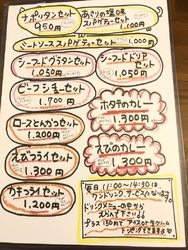 ナポリタンセット
950円
あさりの塩味
スパゲティーセット
1,100円
ミートソーススパゲティーセット
シーフードグラタンセット
1,050円
シーフードドリアセット
1,050円
ビーフシチューセット
1,700円
ホタテのカレー
1,300円
ロースとんかつセット
1,200円
えびのカレー
1,300円
えびフライセット
1,300円
カキフライセット
1,200円
毎日 11:00〜14:30は
ワンドリンクサービスになります
ドリンクメニューの中から
えらんで下さい
プラス150円で アイスクリームに
トッピングできます